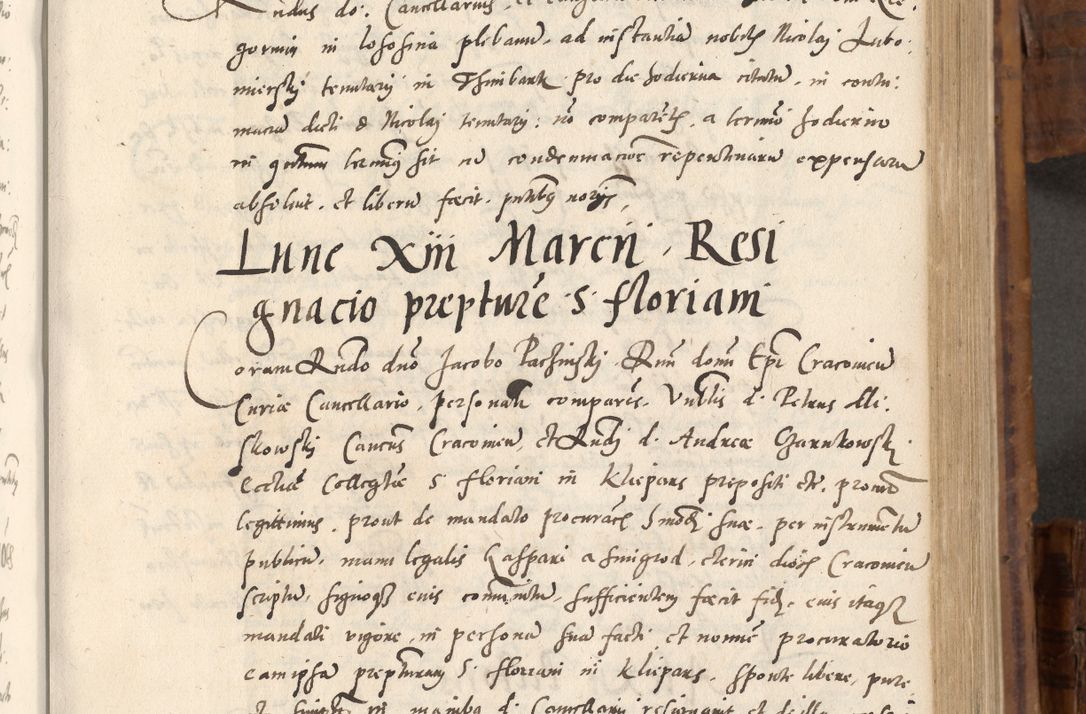 gorium in Lososina plebanum, ad instantiam nobilis Nicolai Lubo:
mierskj tenutarij in Thimbark pro die hodierna citatum, in contu:
maciam dicti d Nicolai tenutarij: no comparetis, a termio hodierno
in quntum termius sit ne condemnacoe repentinaru expensaru
absoluit, et liberu fecit, pntibus
Lune Xiii Marcii, Resi
gnacio prepture S floriani
Coram Rndo dno Jacobo Pachinskj Rmi domi Epi Cracovien
Curiæ Cancellario, personalr comparens, Vnblis d. Petrus Mi:
skowskj Cancus Cracovien, et Rndj d. Andreæ Czarnkowskj
Eccliæ Collegtæ S floriani in Klepars prepositi etc. procuor
legittimus, prout de mandato procuracis suæ, per instrumentu
publicu, manu legalis Gaspari a Smigrod, clerici dioces Cracovien
scriptu, signoqz eius comunitu, sufficientem fecit fidē, eius itaqz
mandati vigore, in persona sua facti et nomie procuratorio
eam ipsam prepturam S floriani in Klepars, sponte libere, pure